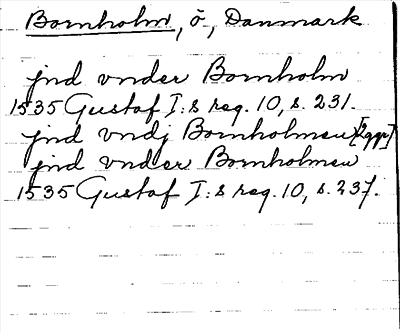 Bornholm, ö, Danmark
jnd vnder Bornholm
1535 Gustaf I:s reg. 10, s. 231.
jnd vndj Bornholmen [2ggr]
jnd vnder Bornholmen
1535 Gustaf I:s reg. 10, s. 237.